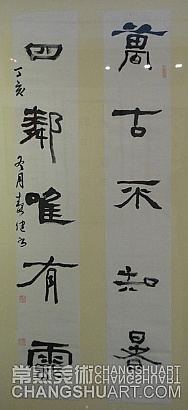 萬古不知暑
四鄰唯有雲
丁亥
冬月
常熟美術 CHANGSHUART
CHANGSHUART.COM